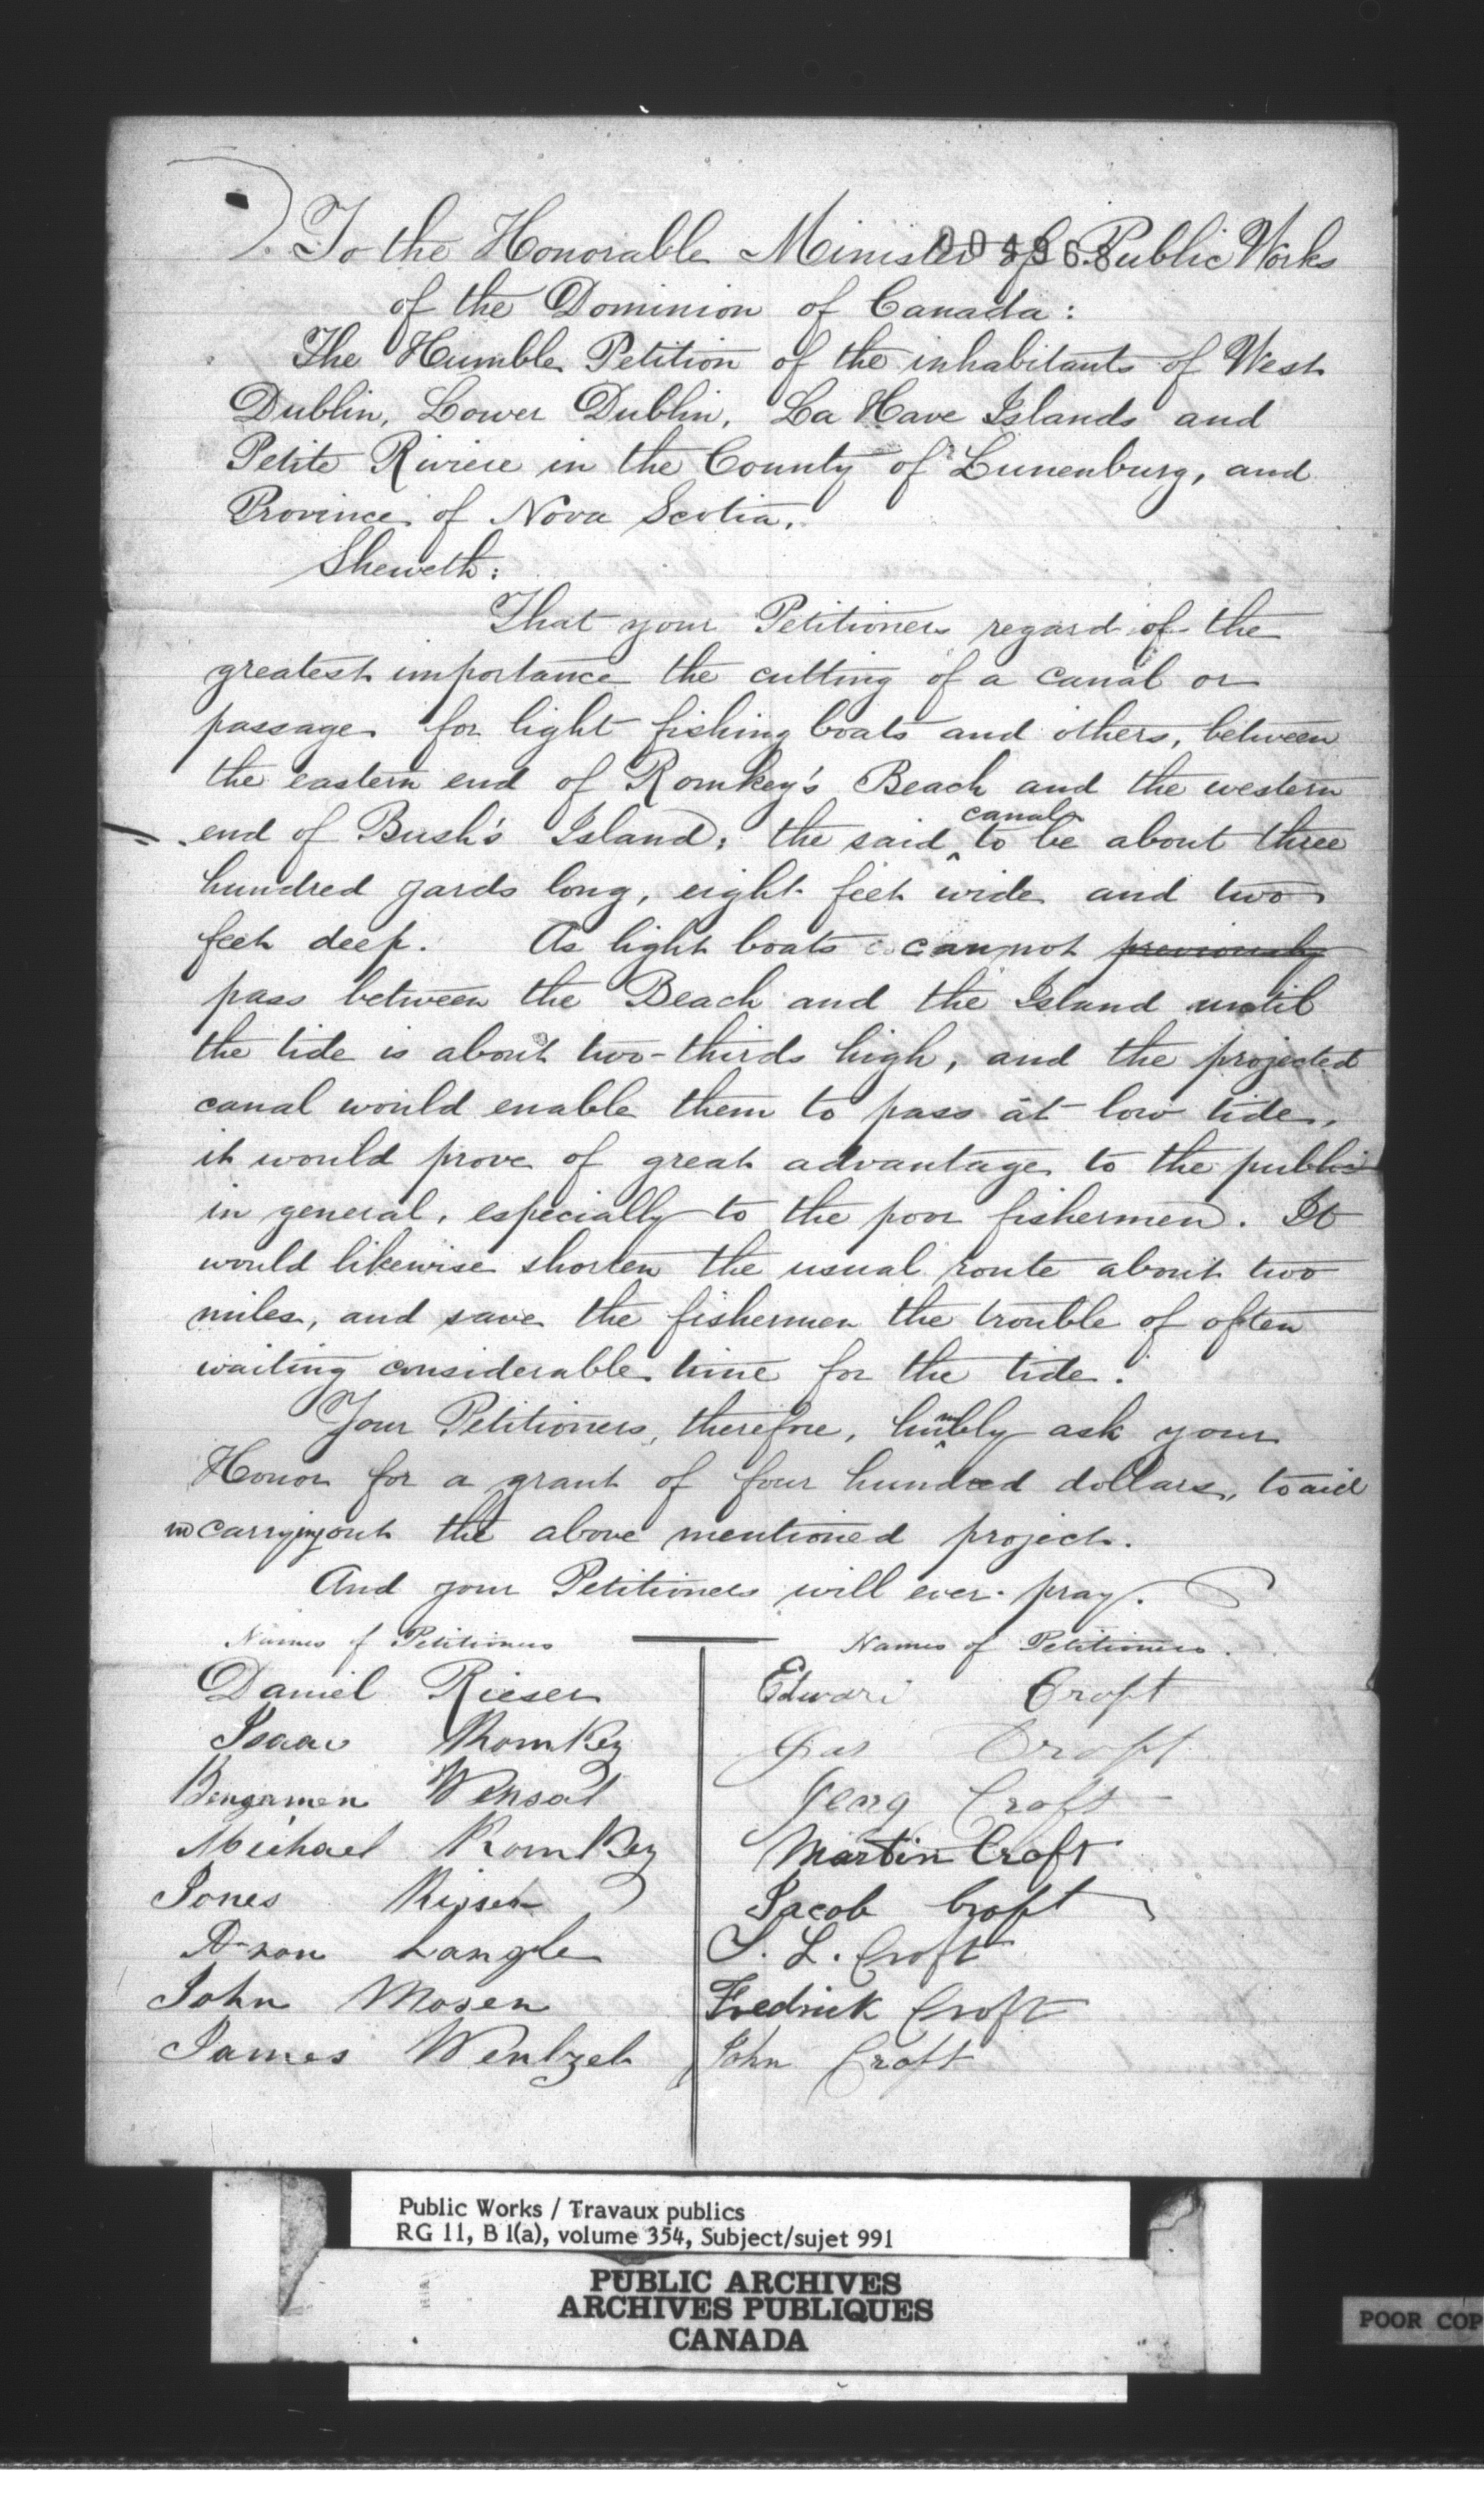 To the Honorable Minister of Public Works
004968
of the Dominion of Canada:
The Humble Petition of the inhabitants of West
Dublin, Lower Dublin, La Have Islands and
Petite Riviere in the County of Lunenburg, and
Province of Nova Scotia,
Sheweth:
That your Petitioners regard of the
greatest importance the cutting of a canal or
passage for light fishing boats and others, between
the eastern end of Romkey's Beach and the western
end of Bush's Island; the said canal to be about three
hundred yards long, eight feet wide and two
feet deep. As light boats cannot previously
pass between the Beach and the Island until
the tide is about two-thirds high, and the projected
canal would enable them to pass at low tide,
it would prove of great advantage to the public
in general, especially to the poor fishermen. It
would likewise shorten the usual route about two
miles, and save the fishermen the trouble of often
waiting considerable time for the tide.
Your Petitioners, therefore, humbly ask your
Honor for a grant of four hundred dollars, to aid
in carrying out the above mentioned project.
And your Petitioners will ever pray.
Names of Petitioners
Daniel Rieser
Isaac Romkey
Bengamen Wensal
Michael Romkey
Jones
Aron Langle
John Mosen
James Wentzel
Names of Petitioners.
Edward Croft
Jas Croft
Georg Croft
Martin Croft
Jacob Croft
S. L. Croft
Fredrick Croft
John Croft
Public Works / Travaux publics
RG 11, B 1(a), volume 354, Subject/sujet 991
PUBLIC ARCHIVES
ARCHIVES PUBLIQUES
CANADA
POOR COP